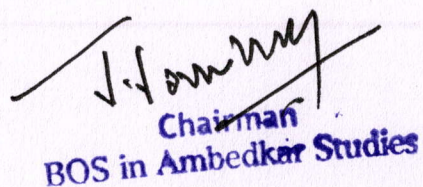 Chairman
BOS in Ambedkar Studies